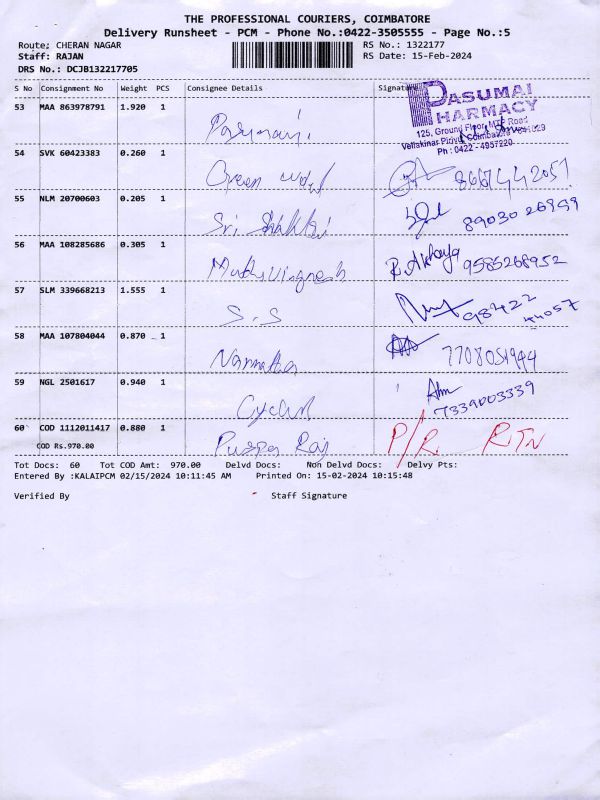 THE PROFESSIONAL COURIERS, COIMBATORE
Delivery Runsheet - PCM - Phone No.:0422-3505555 - Page No.:5
Route: CHERAN NAGAR RS No.: 1322177
Staff: RAJAN RS Date: 15-Feb-2024
DRS No.: DCJB132217705
S No Consignment No Weight PCS Consignee Details Signature
53 MAA 863978791 1.920 1
PASUMAI PHARMACY
125, Ground Floor, MTP Road
Vellakinar Pirivu, Coimbatore
Ph : 0422 - 4957220
54 SVK 60423383 0.260 1
Green 8667442051
55 NLM 20700603 0.205 1
Sri Shakthi
56 MAA 108285686 0.305 1
Muthu Vignesh R. Akhaya 9585268952
57 SLM 339668213 1.555 1
S.S 98422 44057
58 MAA 107804044 0.870 1
7708051944
59 NGL 2501617 0.940 1
7339003339
60 COD 1112011417 0.880 1
COD Rs.970.00
Raj P/R. RTN
Tot Docs: 60 Tot COD Amt: 970.00 Delvd Docs: Non Delvd Docs: Delvy Pts:
Entered By :KALAIPCM 02/15/2024 10:11:45 AM Printed On: 15-02-2024 10:15:48
Verified By Staff Signature